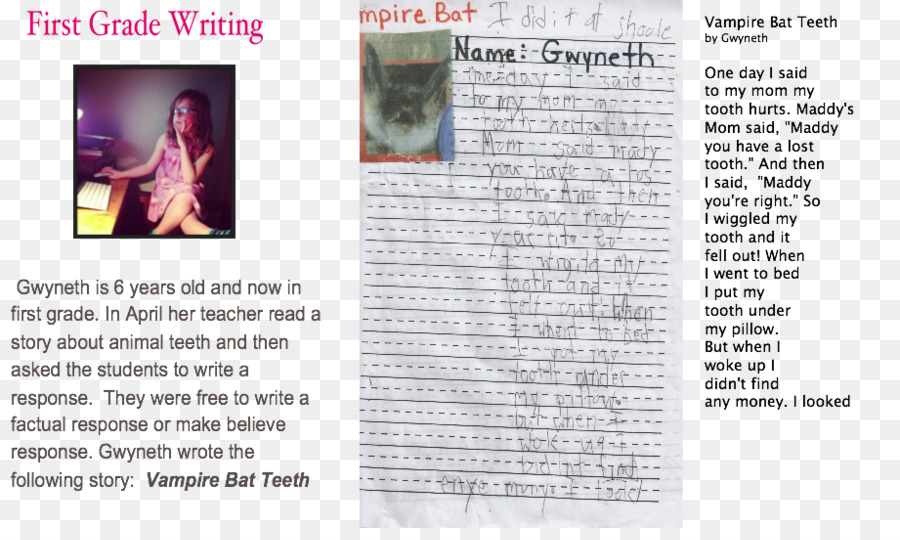 First Grade Writing
Gwyneth is 6 years old and now in
first grade. In April her teacher read a
story about animal teeth and then
asked the students to write a
response. They were free to write a
factual response or make believe
response. Gwyneth wrote the
following story: Vampire Bat Teeth
mpire Bat
I did it at
Name: Gwyneth
day I said
to my mom my
tooth
Mom said mady
you have a los
tooth. And then
I said mady
so
I my
tooth and it
fell out. When
I when to bed
I my
tooth under
my
but when I
I
find
I
Vampire Bat Teeth
by Gwyneth
One day I said
to my mom my
tooth hurts. Maddy's
Mom said, "Maddy
you have a lost
tooth." And then
I said, "Maddy
you're right." So
I wiggled my
tooth and it
fell out! When
I went to bed
I put my
tooth under
my pillow.
But when I
woke up I
didn't find
any money. I looked